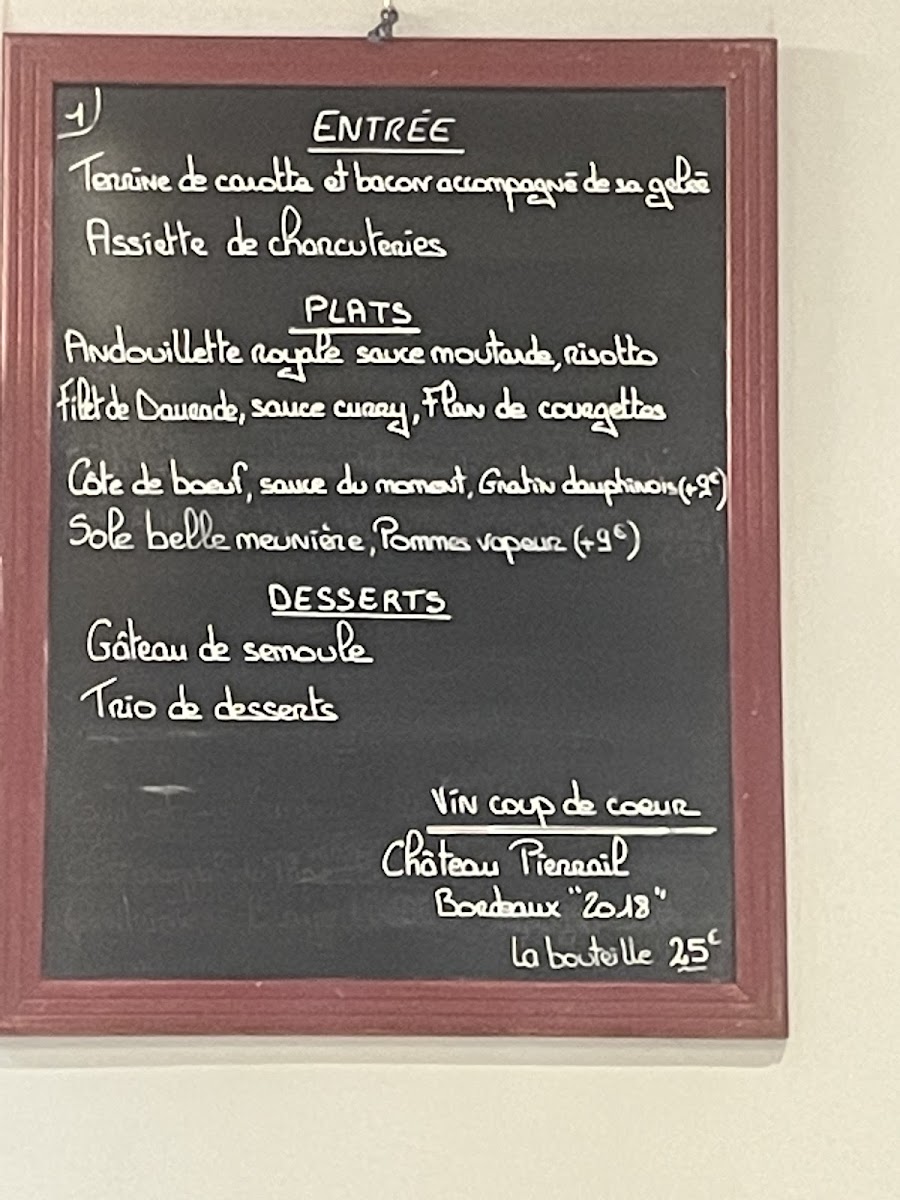 1)
ENTRÉE
Terrine de carotte et bacon accompagné de sa gelée
Assiette de charcuteries
PLATS
Andouillette royale sauce moutarde, risotto
Filet de Daurade, sauce curry, Flan de courgettes
Côte de boeuf, sauce du moment, Gratin dauphinois (+9€)
Sole belle meunière, Pommes vapeur (+9€)
DESSERTS
Gâteau de semoule
Trio de desserts
Vin coup de coeur
Château Pierrail
Bordeaux "2018"
La bouteille 25€